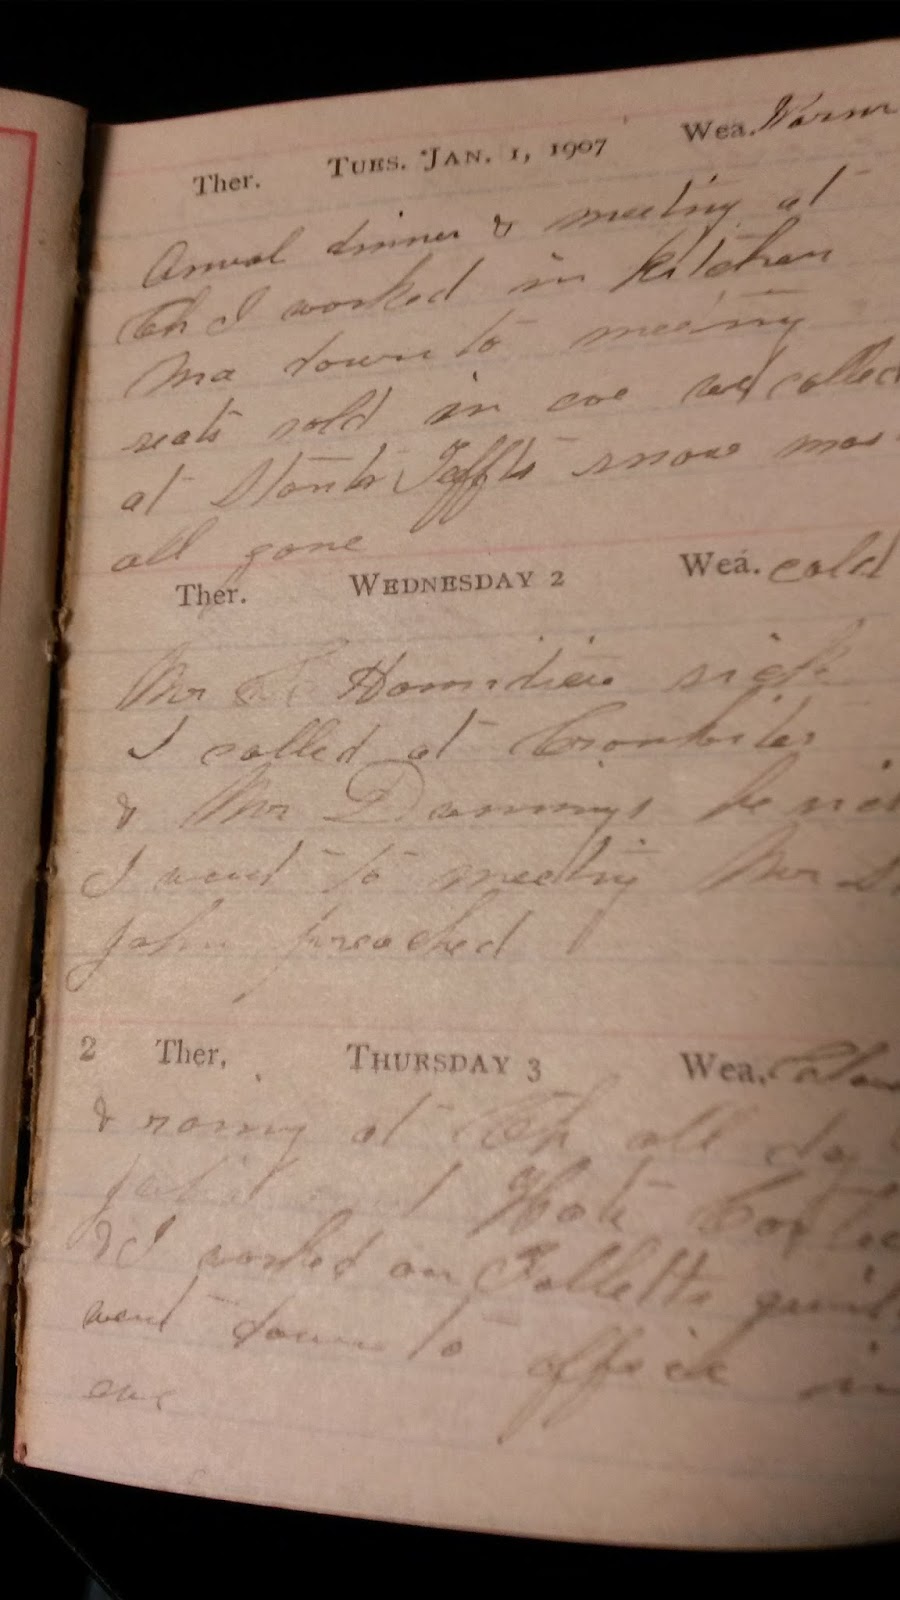 Ther. TUES. JAN. 1, 1907 Wea. Warm
Anual dinner & meeting at
Ch I worked in kitchen
Ma down to meeting
seats sold in eve we called
at Taffts snow mos
all gone
Ther. WEDNESDAY 2 Wea. cold
Mr sick
I called at Cronkites
& Mr he sick
I went to meeting Mr St
John preached
2 Ther. THURSDAY 3 Wea.
& rainy at Ch all day
I Kate
& I worked on Folletts quilt
went down to office in
eve